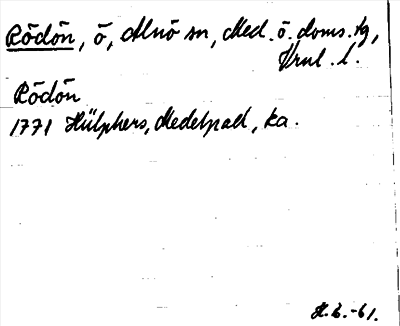 Rödön, ö, Alnö sn, Med. ö. doms. tg,
l.
Rödön
1771 Hülphers, Medelpad, ka.
H.b.-61.